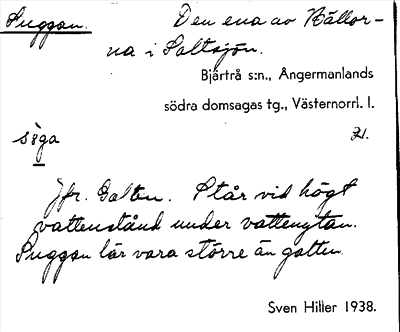 Suggan. Den ena av Hällor-
na i Saltsjön.
Bjärtrå s:n., Ångermanlands
södra domsagas tg., Västernorrl. l.
söga
Jfr. Galten. Står vid högt
vattenstånd under vattenytan.
Suggan lär vara större än galten.
Sven Hiller 1938.